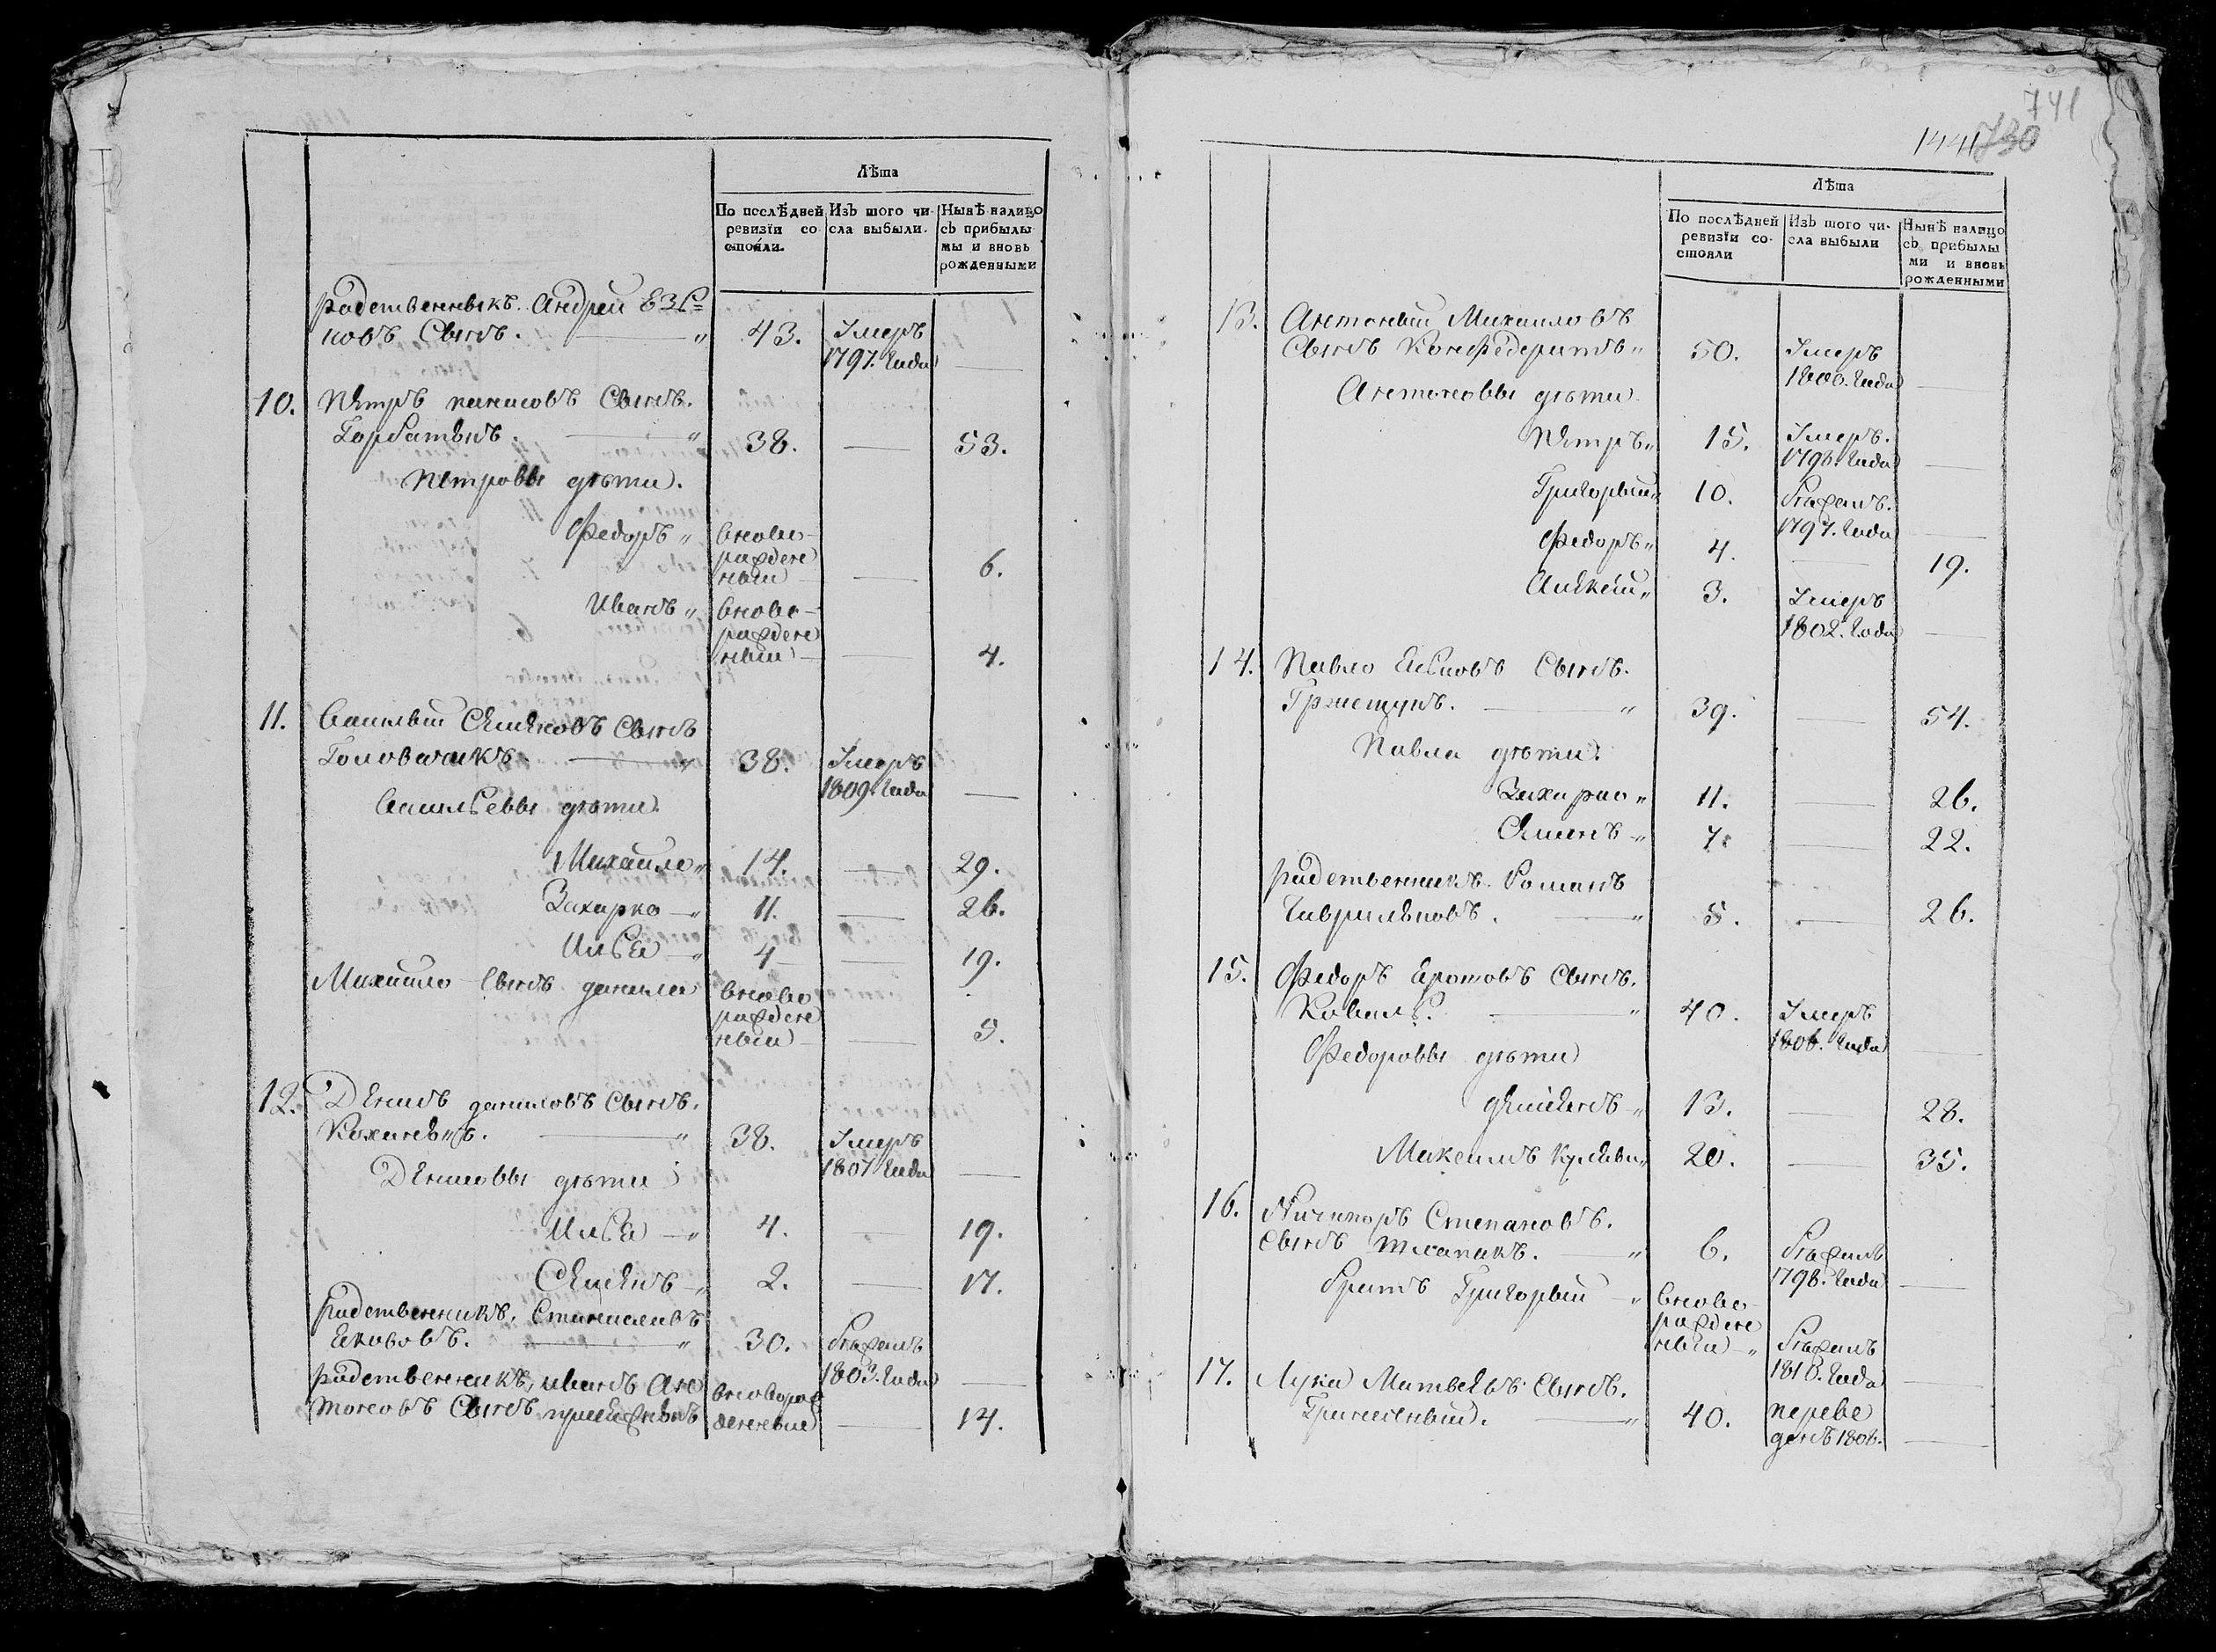 Лѣта
По послѣдней ревизїи состояли.
Изъ того числа выбыли.
Нынѣ налицо съ прибылыми и вновь рожденными
родственникъ Андрей
ковъ Сынъ. 43. Умеръ 1797. Года —
10. Петръ панасовъ Сынъ.
Горбатыкъ. 38. — 53.
Петровы дѣти.
Федоръ вновьрожденный — 6.
Иванъ вновьрожденный — 4.
11. Василий Семеновъ Сынъ
Головачикъ 38. Умеръ 1809. Года —
Васильевы дѣти.
Михайло 14. — 29.
Захарко 11. — 26.
Илья 4 — 19.
Михайло Сынъ данило вновьрожденный — 5.
12. Денисъ даниловъ Сынъ.
38. Умеръ 1801 Года —
Денисовы дѣти
Илья 4. — 19.
Семенъ 2. — 17.
родственникъ. Станиславъ
Якововъ. 30. 1803. Года —
родственникъ, иванъ Антоновъ Сынъ вноворожденный — 14.
741
1441 730
Лѣта
По послѣдней ревизїи состояли
Изъ того числа выбыли
Нынѣ налицо съ прибылыми и вновь рожденными
13. Антоний Михайловъ
Сынъ Конфедератъ 50. Умеръ 1800. Года —
Антоновы дѣти
Петръ 15. Умеръ. 1798. Года —
Григорый 10. 1797. Года —
Федоръ 4. — 19.
Алексей 3. Умеръ 1802. Года —
14. Павло Сынъ.
39. — 54.
Павла дѣти.
Захарко 11. — 26.
Семенъ 7. — 22.
родственникъ. Романъ
Гаврильковъ. 5. — 26.
15. Федоръ Сынъ.
Коваль. 40. Умеръ 1806. Года —
Федоровы дѣти
демьянъ 13. — 28.
Максимъ 20. — 35.
16. Ничипоръ Степановъ.
Сынъ 6. 1798. Года —
братъ Григорый вновьрожденный 1810. Года —
17. Лука Матвеевъ Сынъ.
40. переведенъ 1808. —